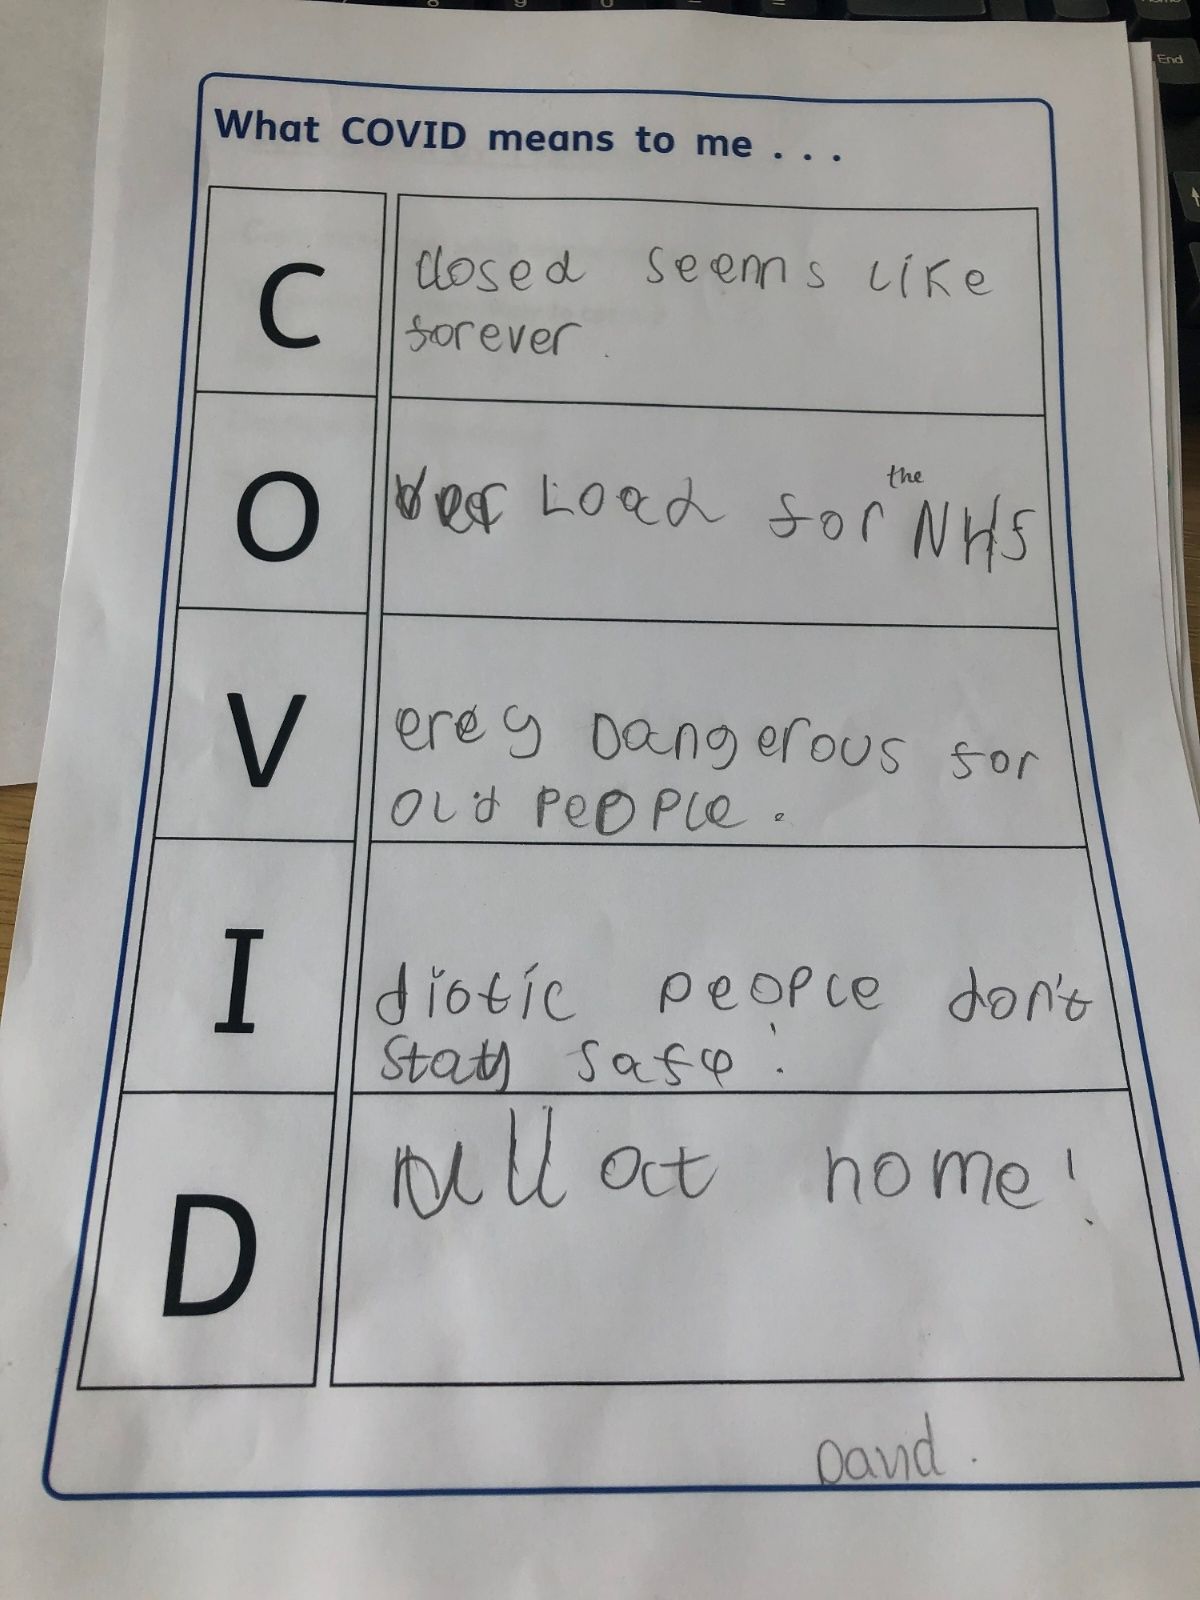 What COVID means to me . . .
C
closed seems like
forever.
O
ver Load for the NHS
V
erey Dangerous for
old People.
I
diotic people don't
stay safe!
D
ull at home!
David.